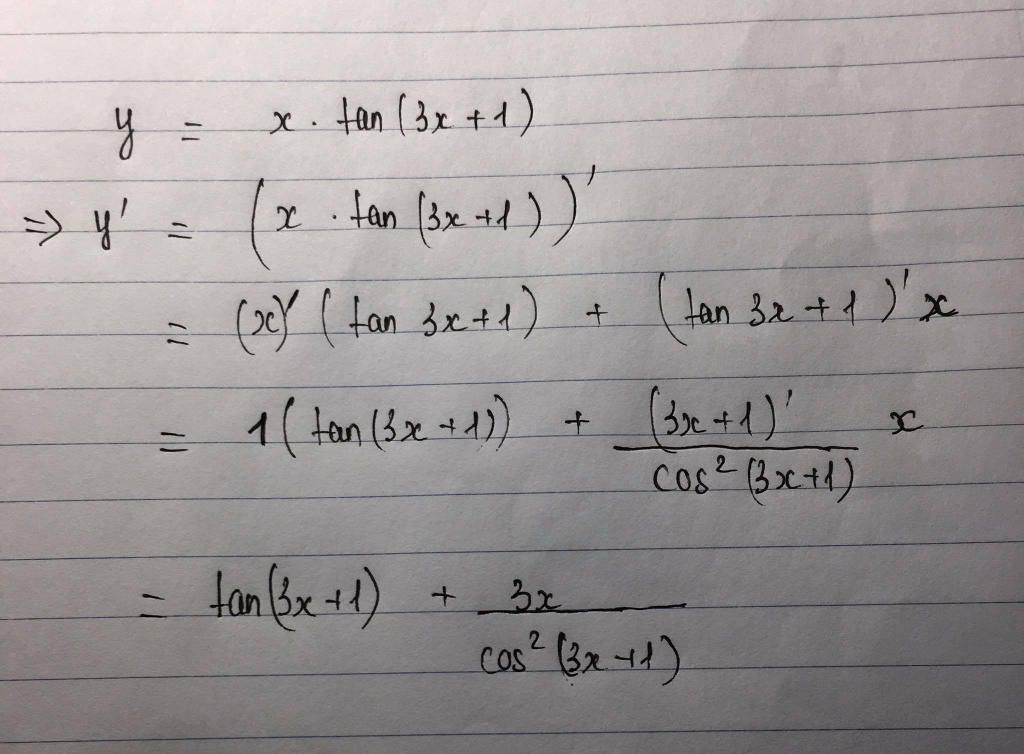 y = x . tan (3x + 1)
⇒ y' = (x . tan (3x + 1))'
= (x)' (tan 3x + 1) + (tan 3x + 1)' x
= 1 (tan (3x + 1)) + (3x + 1)' / cos² (3x + 1) x
= tan (3x + 1) + 3x / cos² (3x + 1)